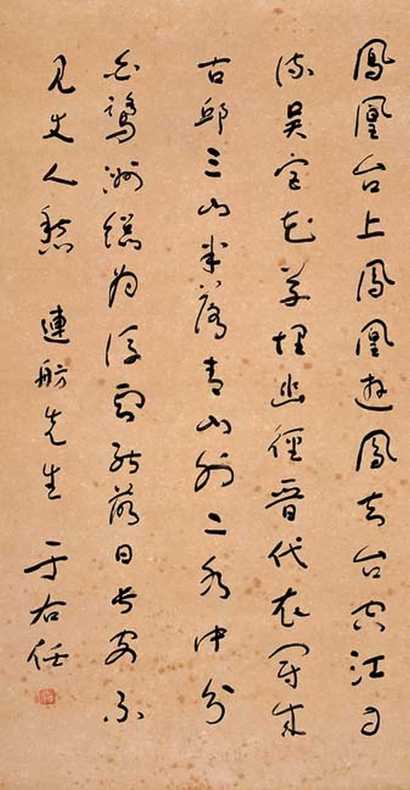 鳳凰台上鳳凰遊鳳去台空江自
流吳宮花草埋幽徑晉代衣冠成
古邱三山半落青山外二水中分
白鷺洲總為浮雲能蔽日長安不
見使人愁 連舫先生 于右任